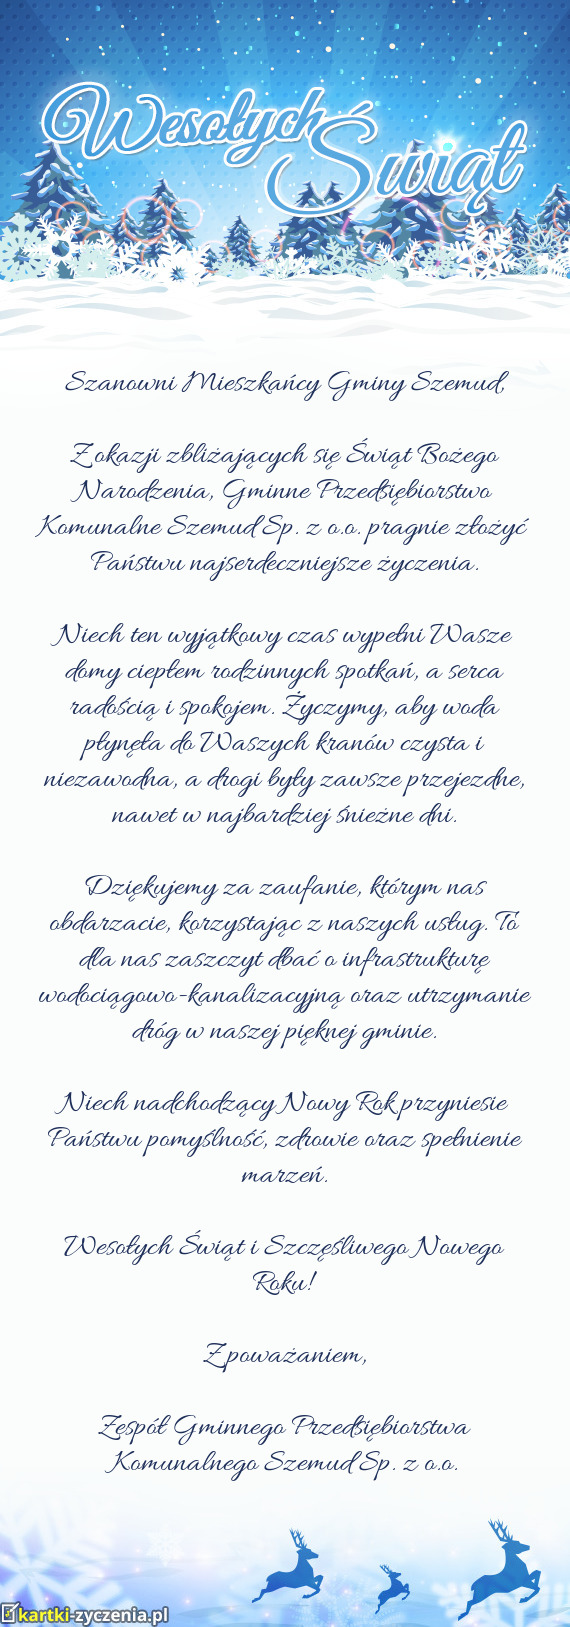 Wesołych
Świąt
Szanowni Mieszkańcy Gminy Szemud,
Z okazji zbliżających się Świąt Bożego
Narodzenia, Gminne Przedsiębiorstwo
Komunalne Szemud Sp. z o.o. pragnie złożyć
Państwu najserdeczniejsze życzenia.
Niech ten wyjątkowy czas wypełni Wasze
domy ciepłem rodzinnych spotkań, a serca
radością i spokojem. Życzymy, aby woda
płynęła do Waszych kranów czysta i
niezawodna, a drogi były zawsze przejezdne,
nawet w najbardziej śnieżne dni.
Dziękujemy za zaufanie, którym nas
obdarzacie, korzystając z naszych usług. To
dla nas zaszczyt dbać o infrastrukturę
wodociągowo-kanalizacyjną oraz utrzymanie
dróg w naszej pięknej gminie.
Niech nadchodzący Nowy Rok przyniesie
Państwu pomyślność, zdrowie oraz spełnienie
marzeń.
Wesołych Świąt i Szczęśliwego Nowego
Roku!
Z poważaniem,
Zespół Gminnego Przedsiębiorstwa
Komunalnego Szemud Sp. z o.o.
kartki-zyczenia.pl